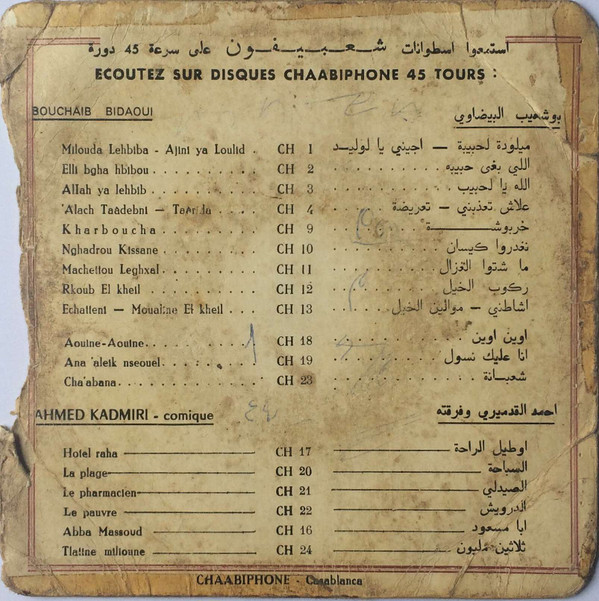 استمعوا اسطوانات شعبيفون على سرعة 45 دورة
ECOUTEZ SUR DISQUES CHAABIPHONE 45 TOURS :
BOUCHAIB BIDAOUI بوشعيب البيضاوي
Milouda Lehbiba - Ajini ya Loulid . CH 1 ميلودة لحبيبة — اجيني يا لوليد
Elli bgha hbibou . . . . . . . . . CH 2 . . . . . . . . . اللي بغى حبيبه
Allah ya lehbib . . . . . . . . . CH 3 . . . . . . . . . الله يا لحبيب
'Alach Taàdebni — . . . . CH 4 . . . . علاش تعذبني — تعريضة
Kharboucha . . . . . . . . . CH 9 . . . . خربوشة
Nghadrou Kissane . . . . . . . . CH 10 . . . . . . . . نغدروا كيسان
Machettou Leghzal . . . . . . . . CH 11 . . . . . . . . ما شتوا الغزال
Rkoub El kheil . . . . . . . . . CH 12 . . . . . . . . . ركوب الخيل
Echatteni — Moualine El kheil . . . CH 13 . . . اشاطني — موالين الخيل
Aouine-Aouine . . . . . . . . . CH 18 . . . . . . . . . اوين اوين
Ana 'aleik nseouel . . . . . . . . CH 19 . . . . . . . . انا عليك نسول
Cha'abana . . . . . . . . . . . CH 23 . . . . . . . . . . . شعبانة
AHMED KADMIRI - comique احمد القدميري وفرقته
Hotel raha CH 17 اوطيل الراحة
La plage CH 20 السباحة
Le pharmacien CH 21 الصيدلي
Le pauvre CH 22 الدرويش
Abba Massoud CH 16 ابا مسعود
Tlatine milioune CH 24 ثلاثين مليون
CHAABIPHONE - Casablanca